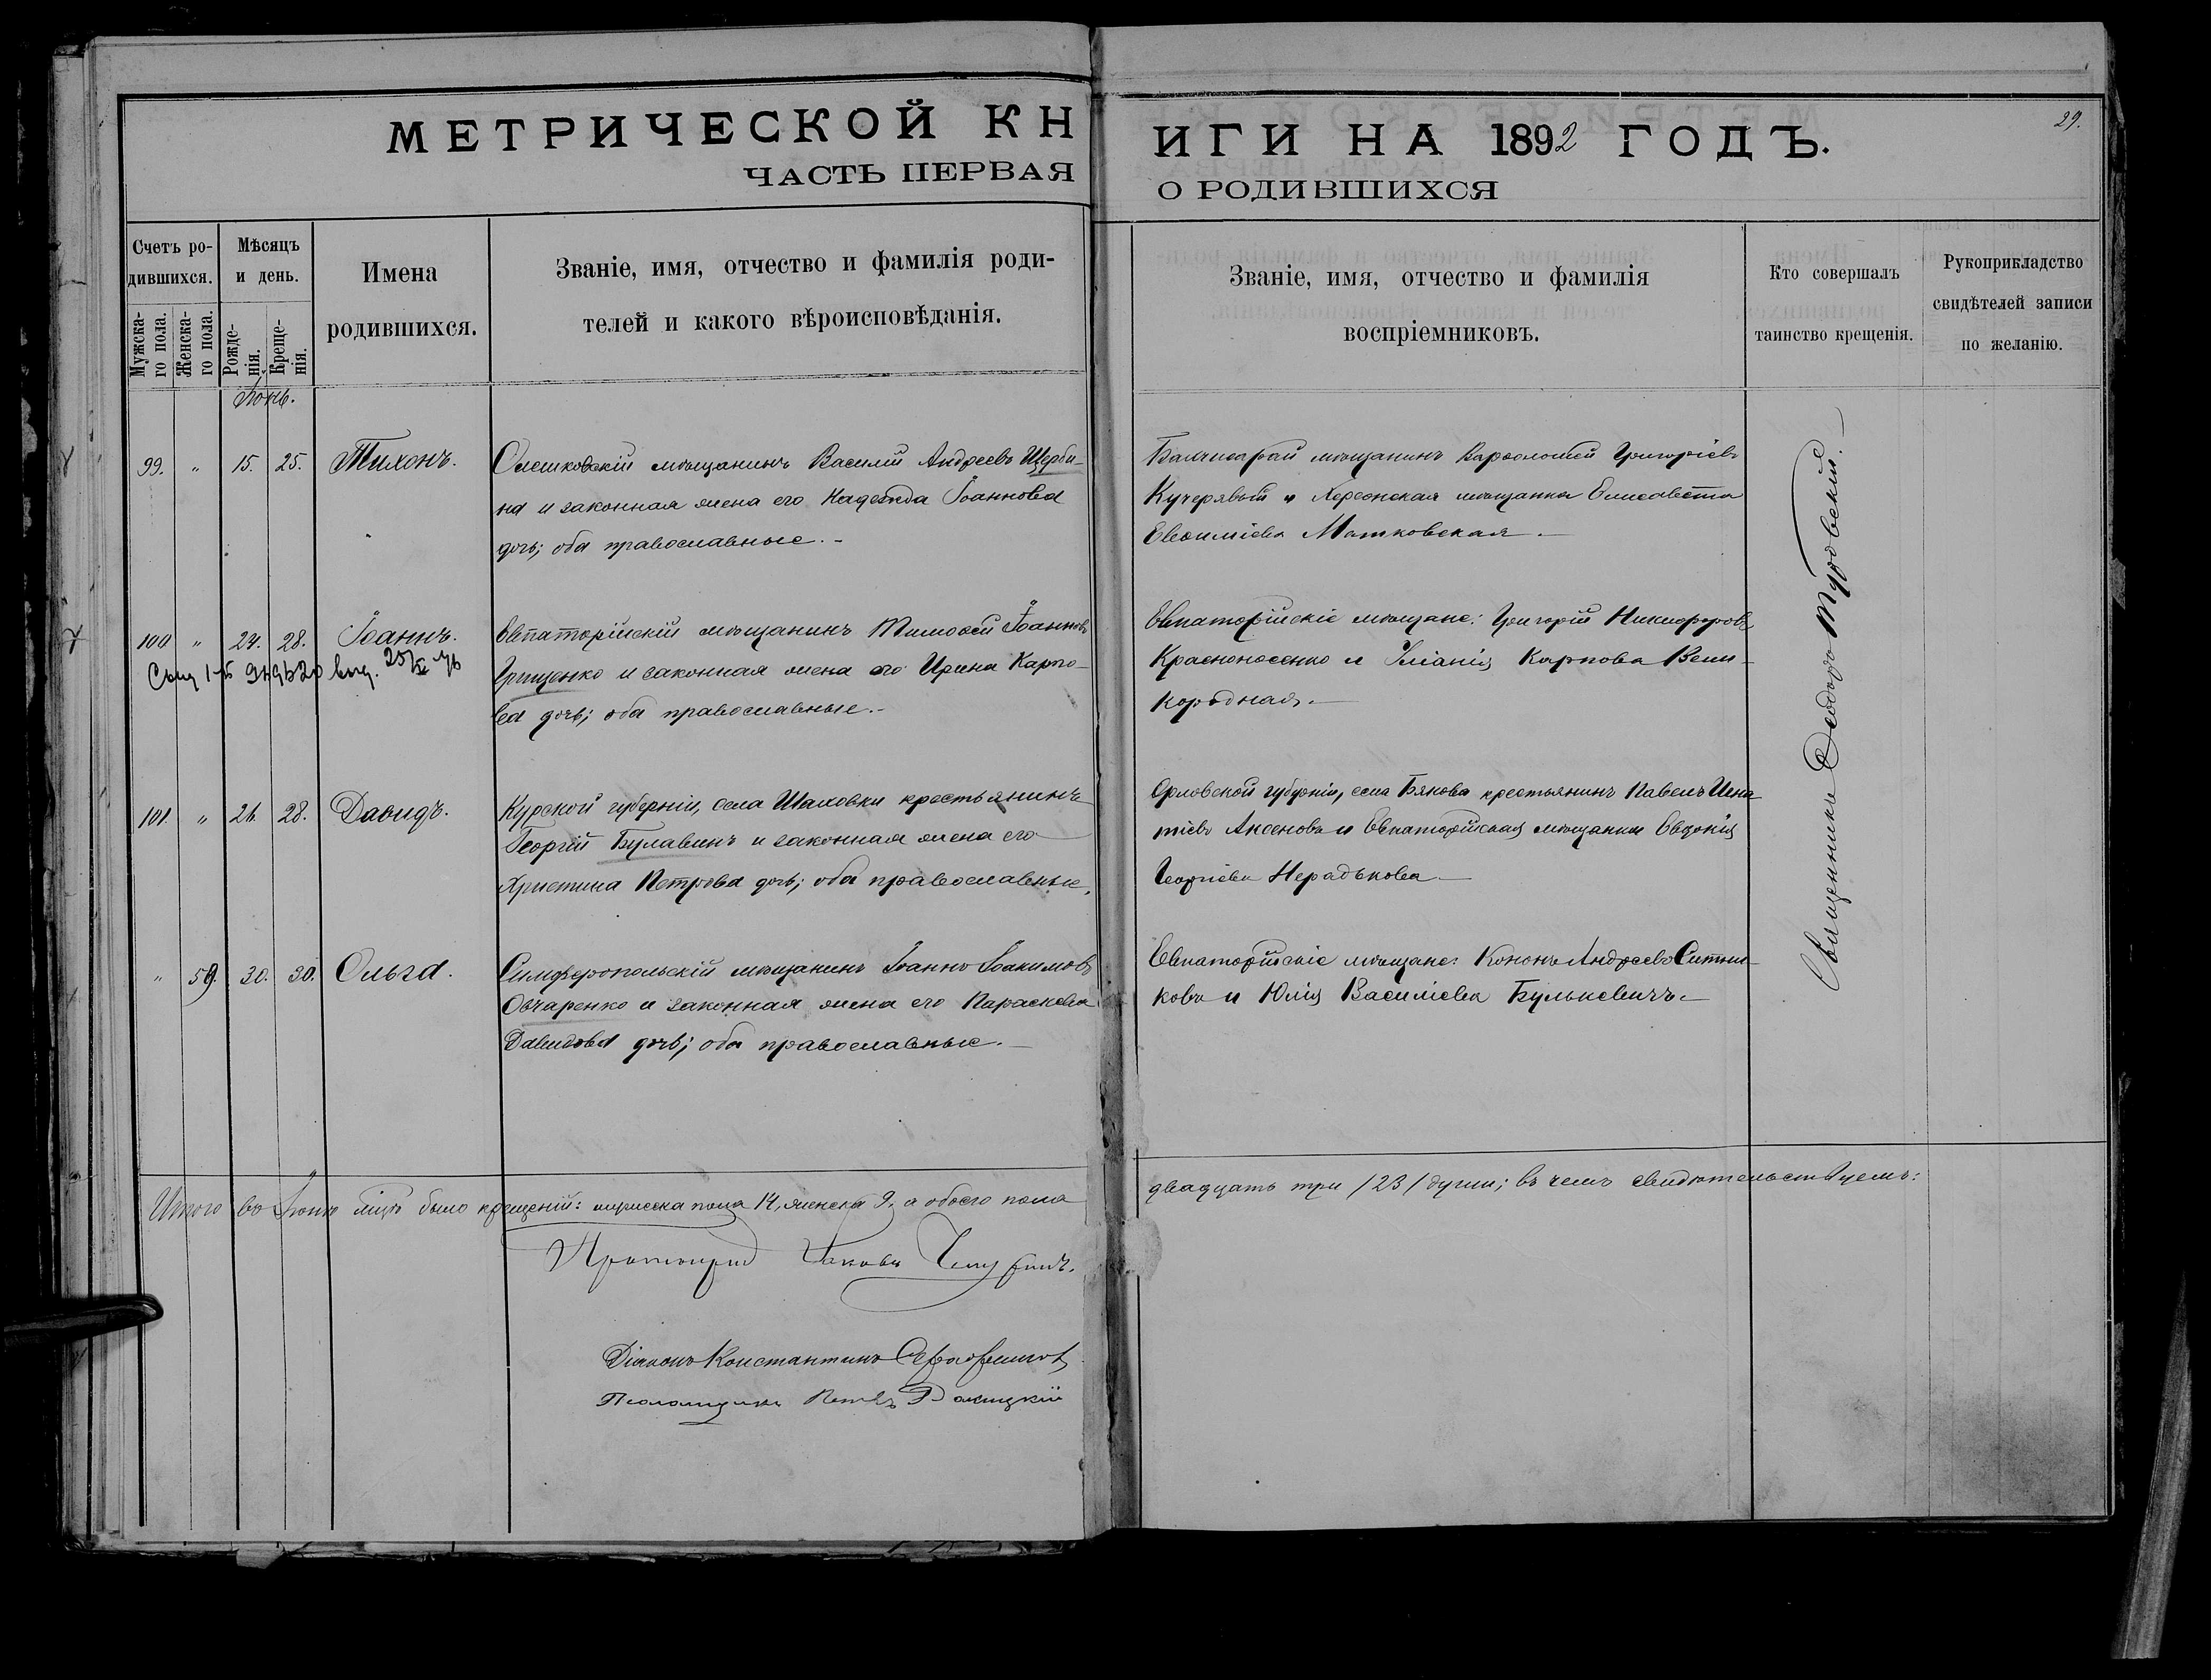 МЕТРИЧЕСКОЙ КНИГИ НА 1892 ГОДЪ.
29.
ЧАСТЬ ПЕРВАЯ О РОДИВШИХСЯ
Счетъ ро-
дившихся.
Мужска-
го пола.
Женска-
го пола.
Мѣсяцъ
и день.
Рожде-
нія.
Креще-
нія.
Имена
родившихся.
Званіе, имя, отчество и фамилія роди-
телей и какого вѣроисповѣданія.
Званіе, имя, отчество и фамилія
воспріемниковъ.
Кто совершалъ
таинство крещенія.
Рукоприкладство
свидѣтелей записи
по желанію.
Іюнь.
99. " 15. 25. Тихонъ.
Олешковскій мѣщанинъ Василій Андреевъ Щерби-
на и законная жена его Надежда Іоаннова
дочь; оба православные.-
Бахчисарай мѣщанинъ Варѳоломей Григоріевъ
Кучерявый и Херсонская мѣщанка Елисавета
Евѳиміева Матковская.
100 " 24. 28. Іоаннъ.
Евпаторійскій мѣщанинъ Тимоѳей Іоанновъ
Грищенко и законная жена его Ирина Карпо-
ва дочь; оба православные.-
Евпаторійскіе мѣщане: Григорій Никифоровъ
Красноносенко и Іуліанія Карпова Вели-
кородная.
101. " 26. 28. Давидъ.
Курской губерніи, села Шаховки крестьянинъ
Георгій Булавинъ и законная жена его
Христина Петрова дочь; оба православные.
Орловской губерніи, села Бякова крестьянинъ Павелъ Игна
тіевъ Аксеновъ и Евпаторійская мѣщанка Евдокія
Георгіева Нерадькова
" 59. 30. 30. Ольга.
Симферопольскій мѣщанинъ Іоаннъ Іоакимовъ
Овчаренко и законная жена его Параскева
Давидова дочь; оба православные.
Евпаторійскіе мѣщане: Кононъ Андреевъ Ситни-
ковъ и Юлія Василіева Булькевичъ.
Священникъ Ѳеодоръ Туровскій.
Итого въ Іюнѣ мцѣ было крещеній: мужеска пола 14, женска 9, а обоего пола
двадцать три /23/ души; въ чемъ свидѣтельствуемъ:
Протоіерей Іаковъ Чепуринъ.
Діаконъ Константинъ
Псаломщикъ Петръ